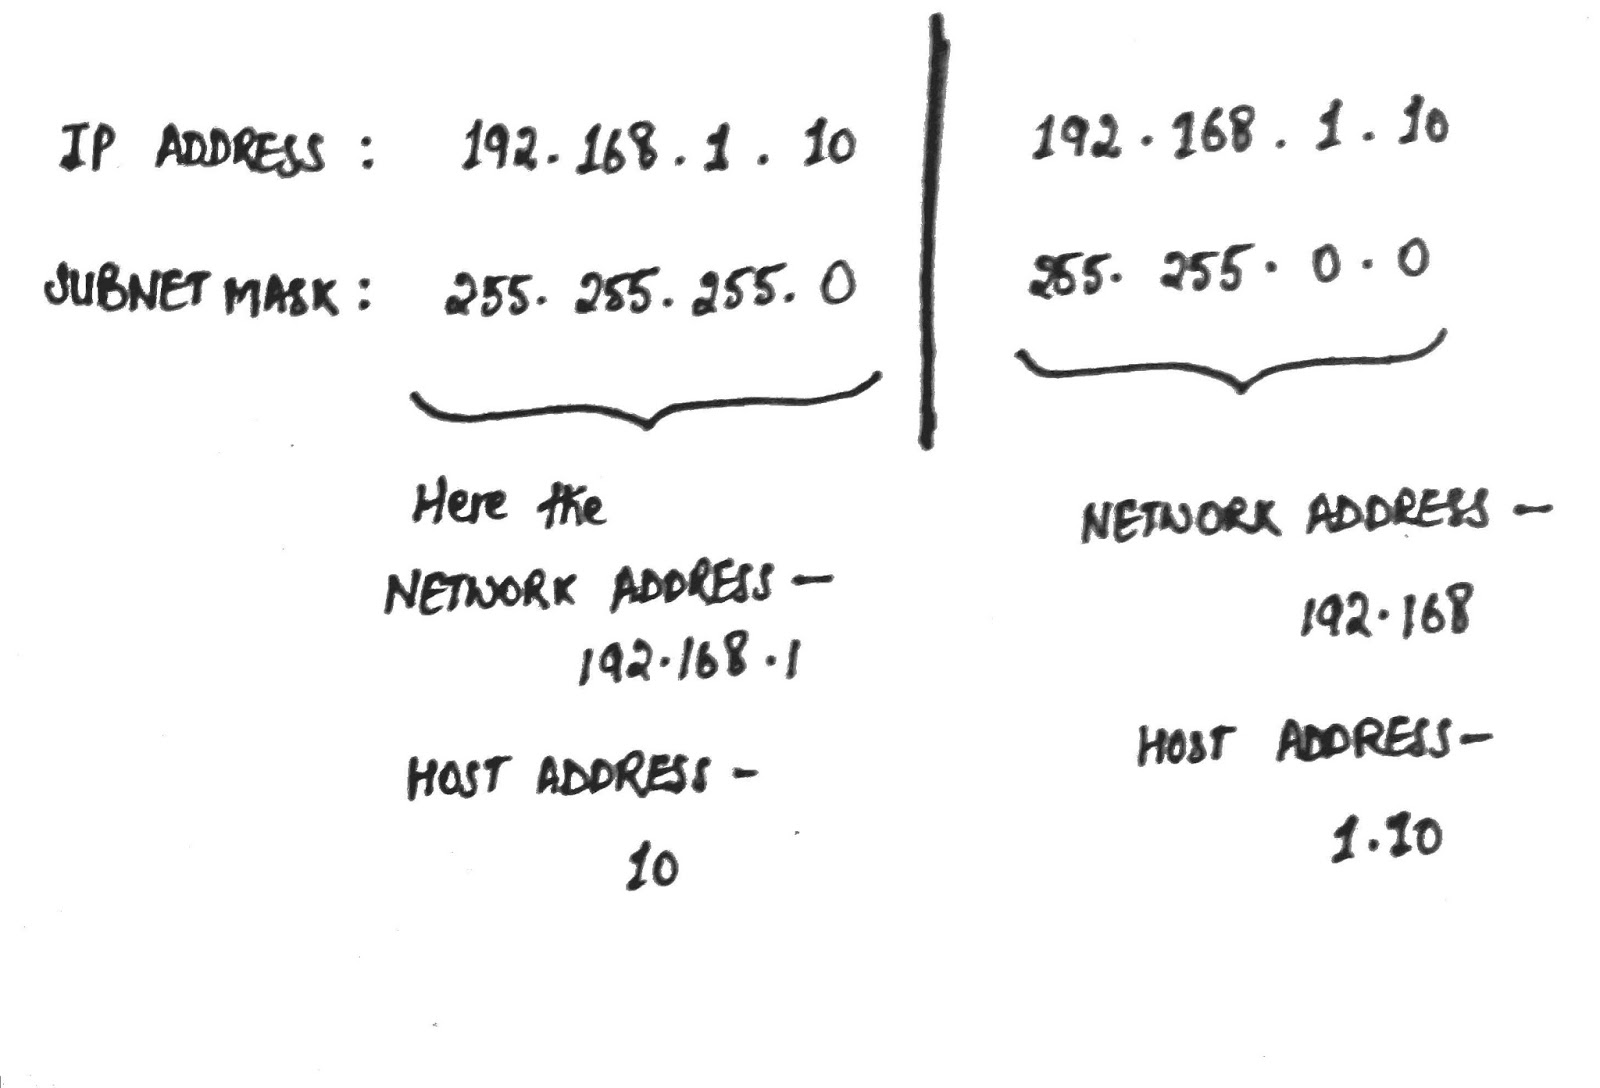 IP ADDRESS : 192.168.1.10 192.168.1.10
SUBNET MASK : 255.255.255.0 255.255.0.0
Here the
NETWORK ADDRESS –
192.168.1
HOST ADDRESS –
10
NETWORK ADDRESS –
192.168
HOST ADDRESS –
1.10